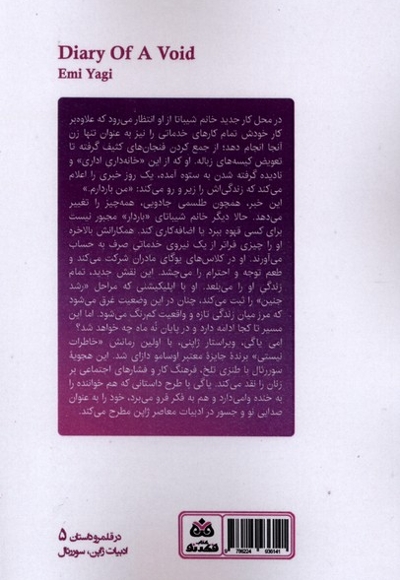 Diary Of A Void
Emi Yagi
در محل کار جدید خانم شیباتا از او انتظار می‌رود که علاوه‌بر
کار خودش تمام کارهای خدماتی را نیز به عنوان تنها زن
آنجا انجام دهد؛ از جمع کردن فنجان‌های کثیف گرفته تا
تعویض کیسه‌های زباله. او که از این «خانه‌داری اداری» و
نادیده گرفته شدن به ستوه آمده، یک روز خبری را اعلام
می‌کند که زندگی‌اش را زیر و رو می‌کند: «من باردارم.»
این خبر، همچون طلسمی جادویی، همه‌چیز را تغییر
می‌دهد. حالا دیگر خانم شیباتای «باردار» مجبور نیست
برای کسی قهوه ببرد یا اضافه‌کاری کند. همکارانش بالاخره
او را چیزی فراتر از یک نیروی خدماتی صرف به حساب
می‌آورند. او در کلاس‌های یوگای مادران شرکت می‌کند و
طعم توجه و احترام را می‌چشد. این نقش جدید، تمام
زندگی او را می‌بلعد. او با اپلیکیشنی که مراحل «رشد
جنین» را ثبت می‌کند، چنان در این وضعیت غرق می‌شود
که مرز میان زندگی تازه و واقعیت کم‌رنگ می‌شود. اما این
مسیر تا کجا ادامه دارد و در پایان نُه ماه چه خواهد شد؟
اِمی یاگی، ویراستار ژاپنی، با اولین رمانش «خاطرات
نیستی» برندهٔ جایزهٔ معتبر اوسامو دازای شد. این هجویهٔ
سوررئال با طنزی تلخ، فرهنگ کار و فشارهای اجتماعی بر
زنان را نقد می‌کند. یاگی با طرح داستانی که هم خواننده را
به خنده وامی‌دارد و هم به فکر فرو می‌برد، خود را به عنوان
صدایی نو و جسور در ادبیات معاصر ژاپن مطرح می‌کند.
در قلمرو داستان ۵
ادبیات ژاپن، سوررئال
9 786224 936141